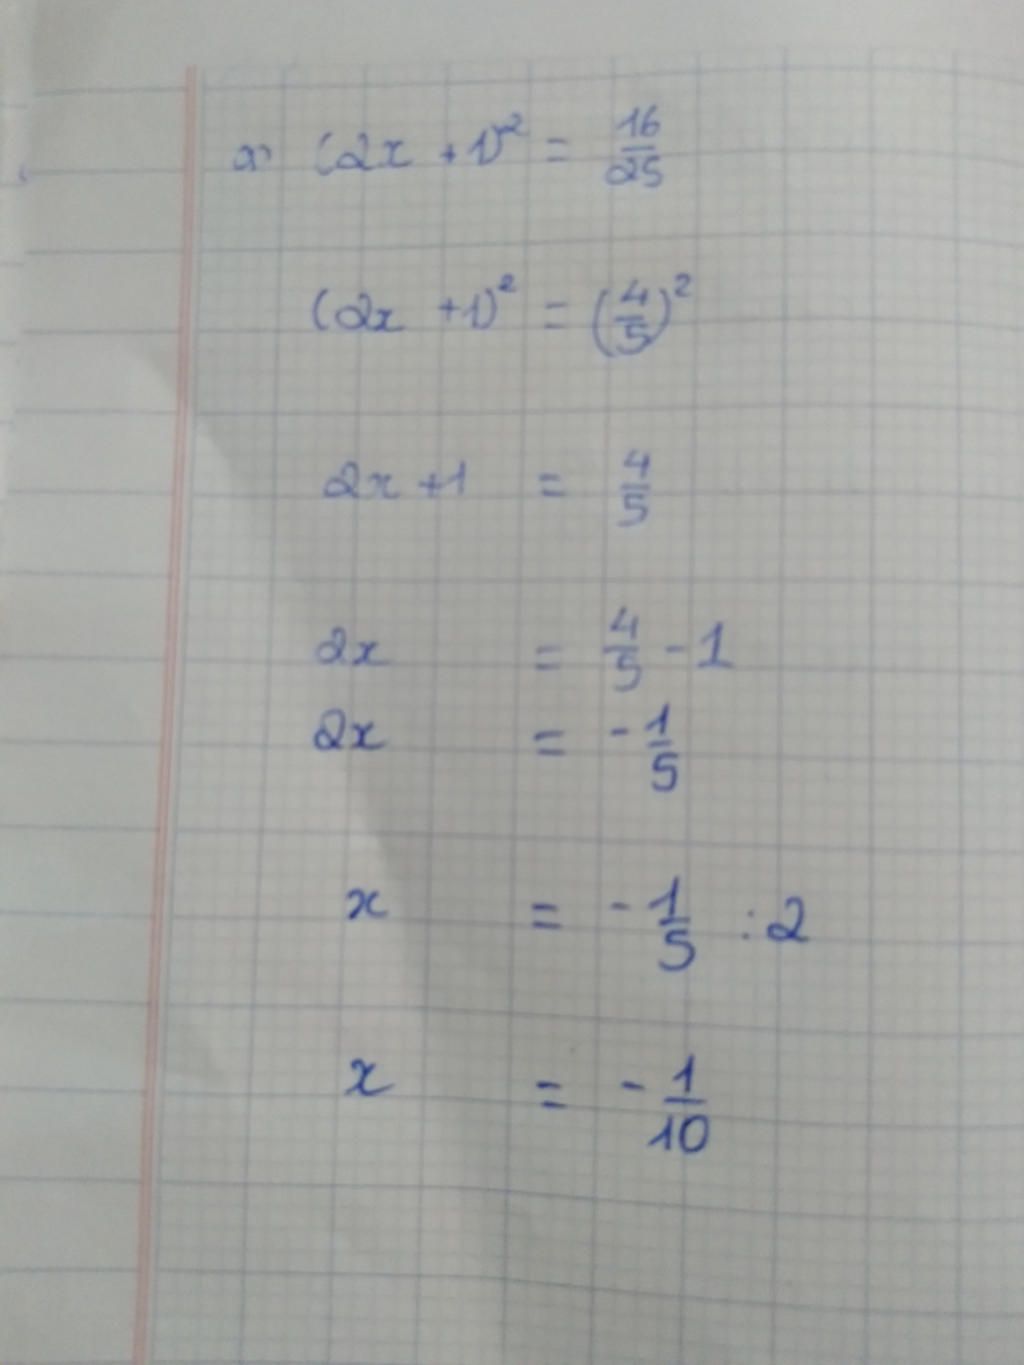 a) (2x + 1)² = 16/25
(2x + 1)² = (4/5)²
2x + 1 = 4/5
2x = 4/5 - 1
2x = - 1/5
x = - 1/5 : 2
x = - 1/10